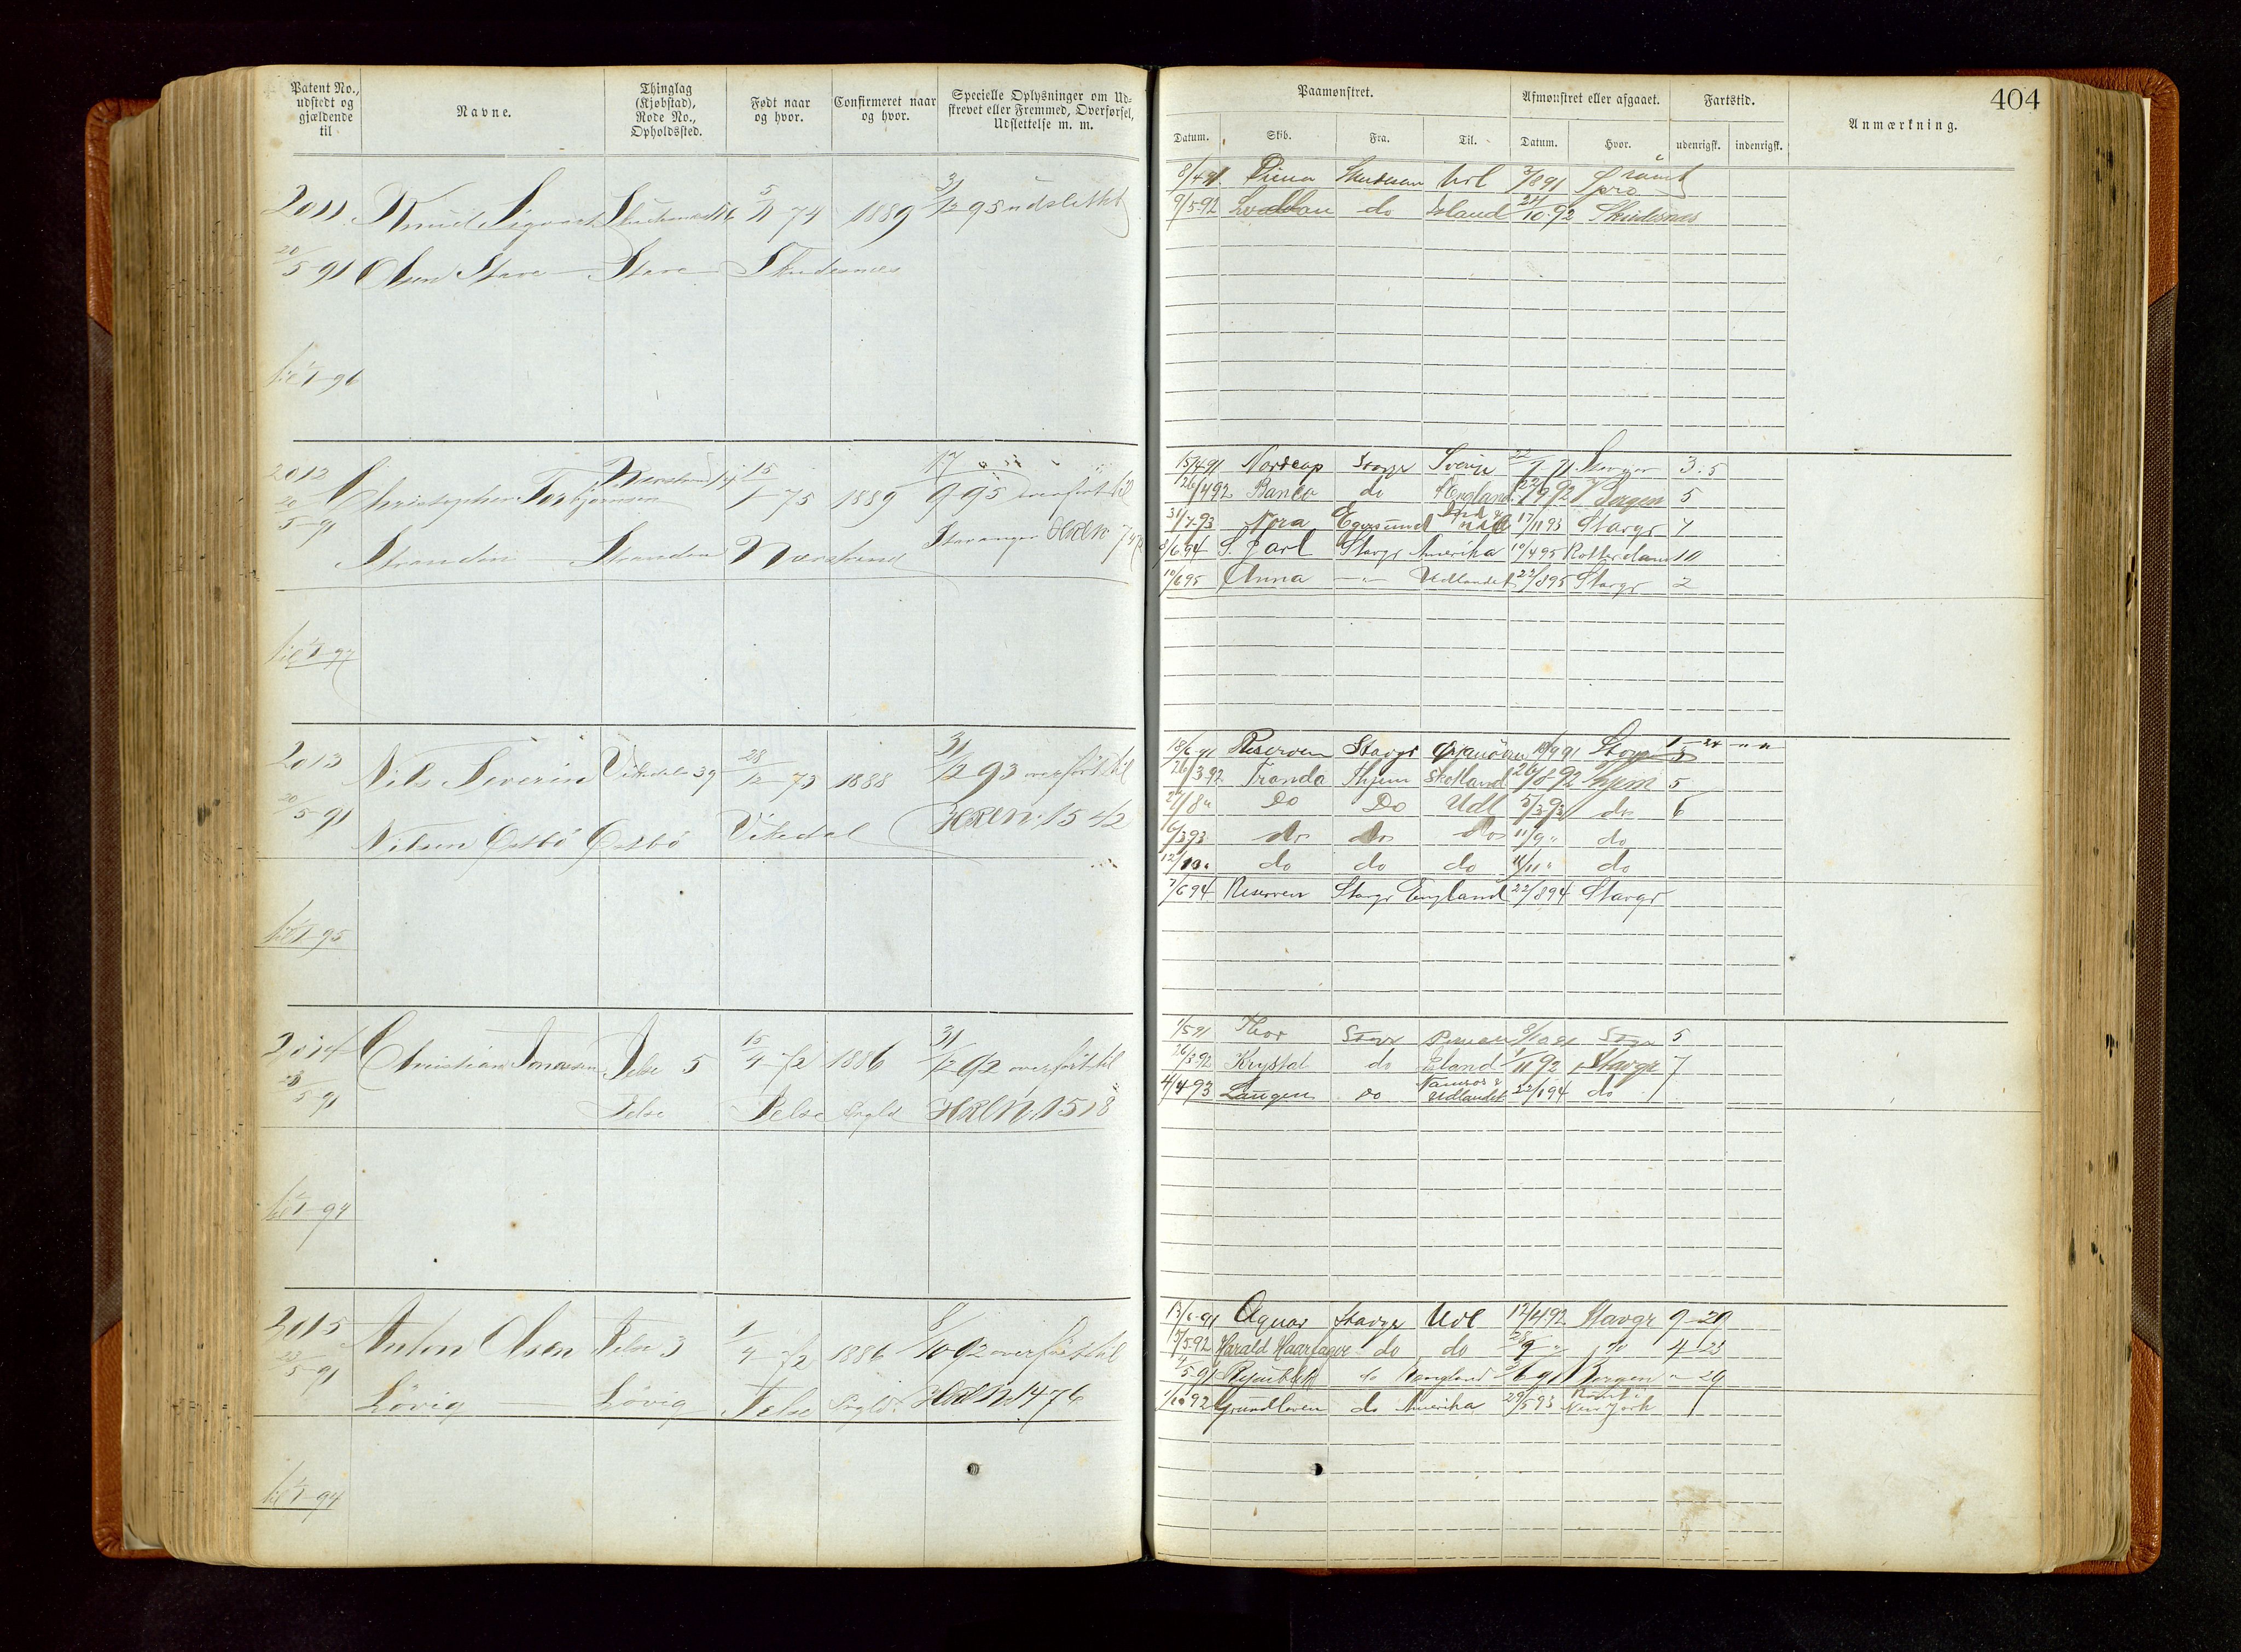 Patent No.,
udstedt og
gjældende
til
Navne.
Thinglag
(Kjøbstad),
Rode No.,
Opholdssted.
Født naar
og hvor.
Confirmeret naar
og hvor.
Specielle Oplysninger om Ud-
skrevet eller Fremmed, Overførsel,
Udslettelse m. m.
2011. Knud Sigvart 5/11 74 1889 31/12 95 udslettet
20/5 91 Olsen Stava Stava Skudesnes
til 1/1 96
2012 Nærstrand 14 15
20/5 91 Christopher Torbjørnsen 1 75 1889 17/9 95 overført til
Stranden Stranden Nærstrand Stavanger
til 1/1 97
2013 Nils Severin Vikedal 39 28/12 73 1888 31/12 93 overført til
20/5 91 Nilsen Østbö Østbö Vikedal HRLN: 1542
til 1/1 95
2014 Christian Jonassen Jelse 5 15/4 72 1886 31/12 92 overført til
5 91 Jelse Jelse Sogld HRLN: 1518
til 1/1 94
2015 Anton Olsen Jelse 3 1/4 72 1886 8/10 92 overført til
23/5 91 Lövig Lövig Jelse Sogld. HRLN 1476
til 1/1 94
404
Paamønstret.
Afmønstret eller afgaaet.
Fartstid.
Anmærkning.
Datum. Skib. Fra. Til. Datum. Hvor. udenrigsk. indenrigsk.
8/4 91. 3/8 91
9/5 92 do Island 10.92 Skudesnes
15/4 91 Nordcap Stavgr Sverig 22 91 Stavgr 3.5
26/4 92 Banco do England 22/9 92 Bergen 5
31/7 93 Nora Egersund 17/11 93 Stavgr 7
8/6 94 S. Jarl Stavgr Amerika 10/4 95 Rotterdam 10
10/6 95 Anna —"— Udlandet 22/8 95 Stavgr 2
18/6 91 Reserven Stavgr 18/9 91 Stavgr
26/3 92 Tranda Thjem Skotland 26/8 92 Thjem 5
27/8 " Do Do Udl 5/3 93 do 6
6/3 93 do do do 11/9 " do
12/10 " do do do 16/11 " do
7/6 94 Reserven Stavgr England 22/8 94 Stavgr
1/5 91 Thor Stavgr 5
26/3 92 Krystal do Island 1/11 92 Stavgr 7
4/4 93 Laugen do Namsos & Udlandet 22/1 94 do
13/6 91 Aquar Stavgr Udl 12/4 92 Stavgr 9-29
5/5 92 Harald Haarfager do do 28/9 " do 4-23
4/5 91 do England 91 Bergen " 29
1/10 92 Grundloven do Amerika 29/5 93 New York